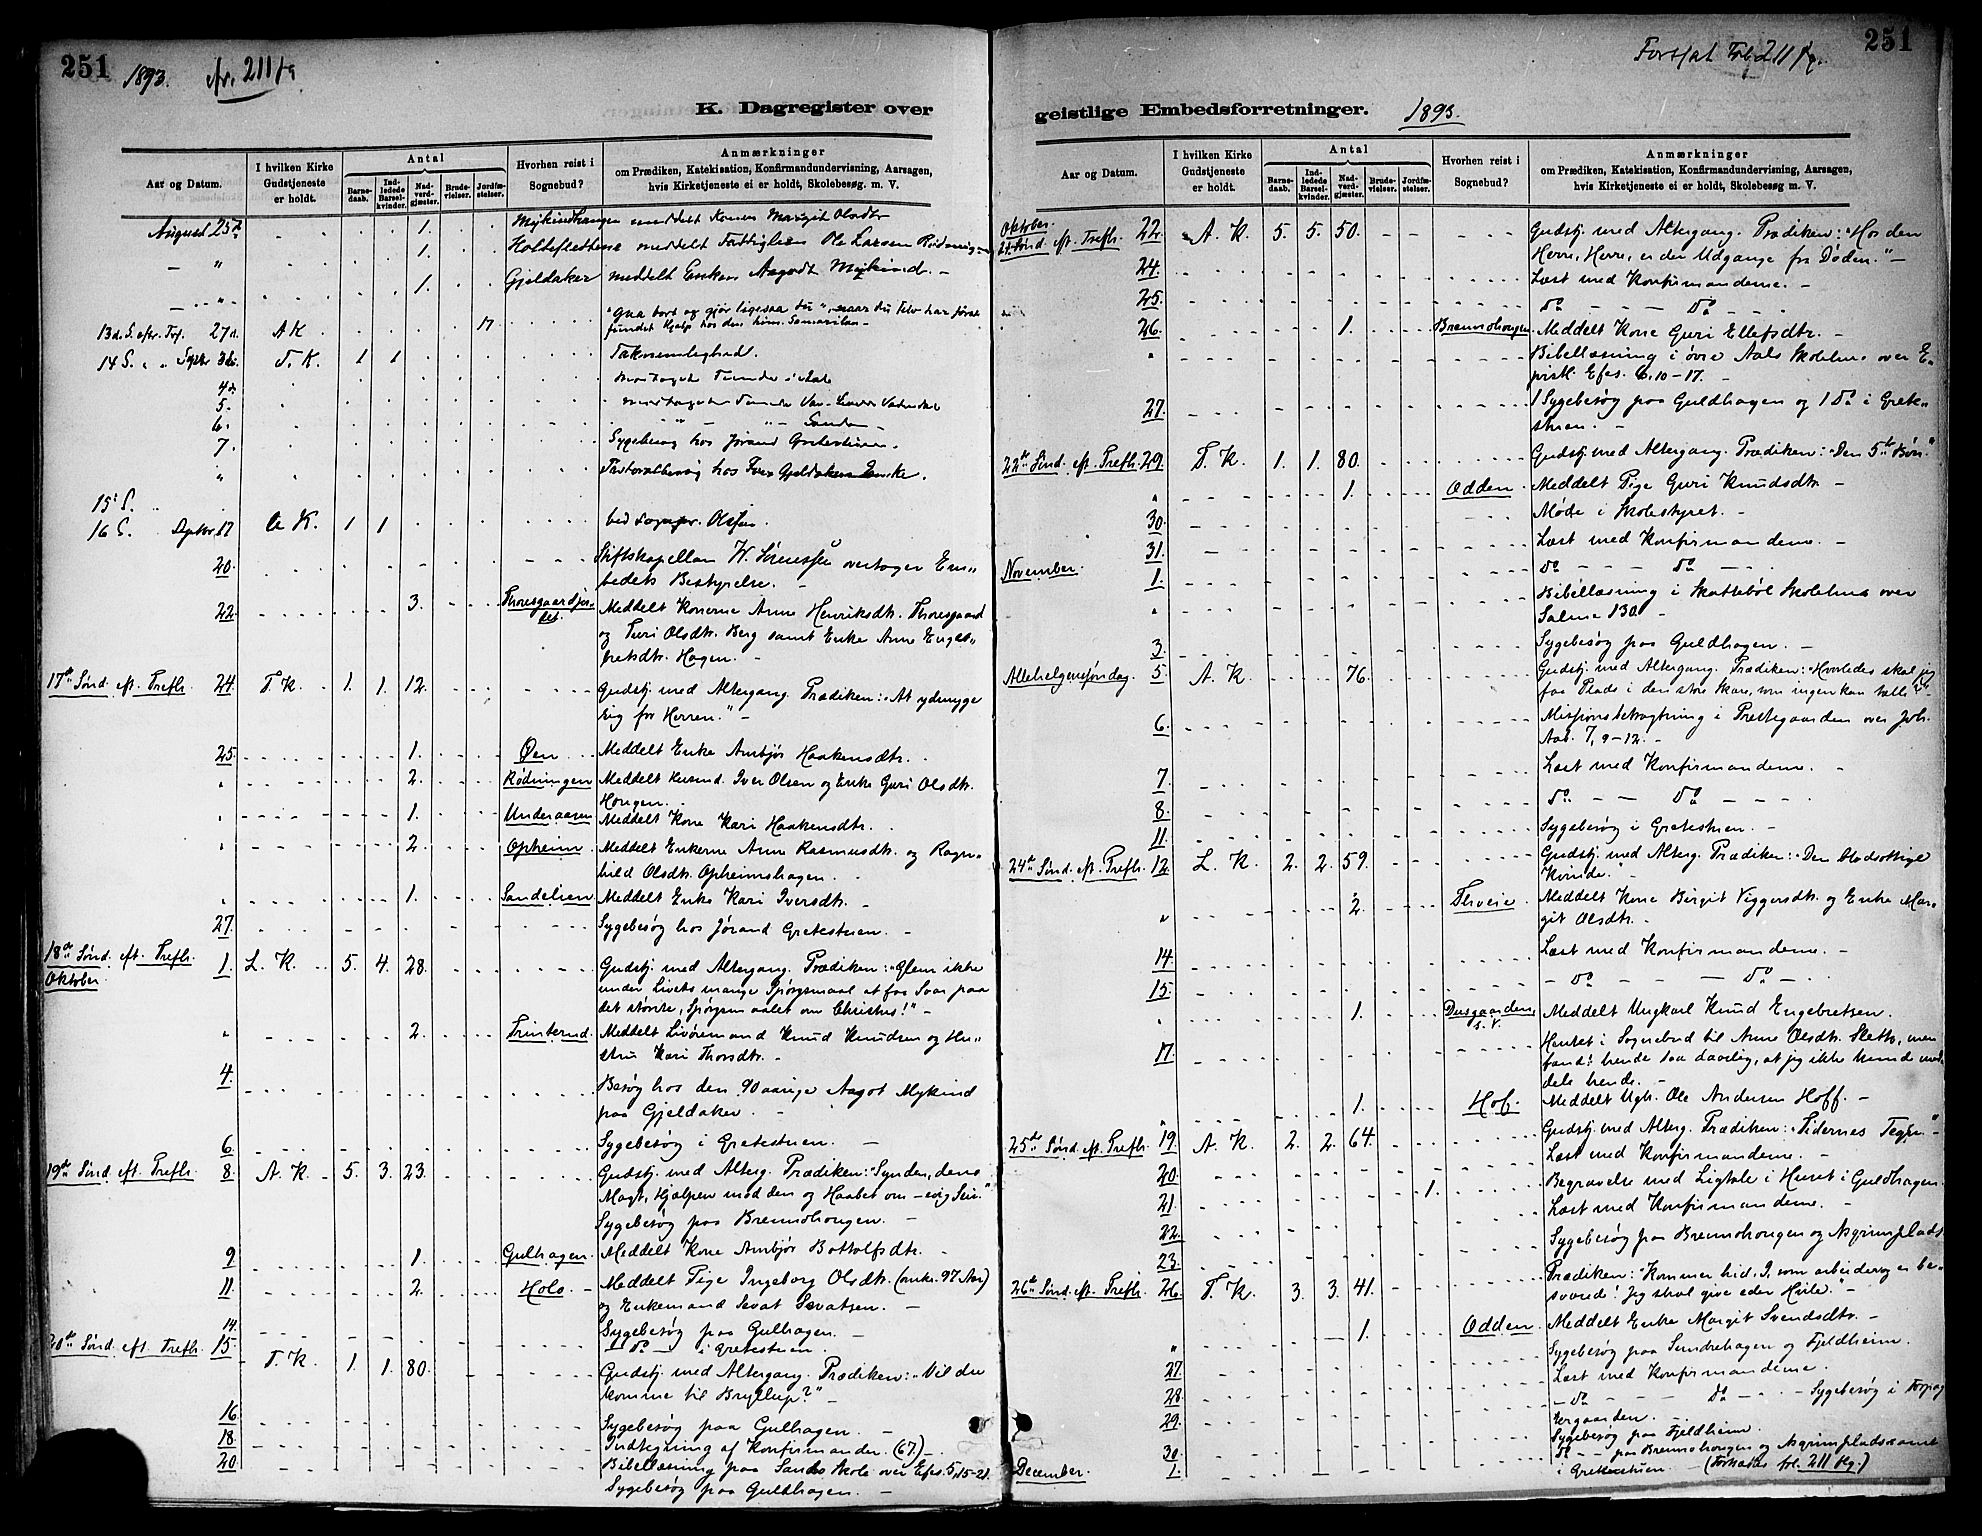 251
1893.
cfr. 211 fg
K. Dagregister over
Aar og Datum.
I hvilken Kirke
Gudstjeneste
er holdt.
Antal
Barne-
daab.
Ind-
ledede
Barsel-
kvinder.
Nad-
verd-
gjæster.
Brude-
vielser.
Jordfæ-
stelser.
Hvorhen reist i
Sognebud?
Anmærkninger
om Prædiken, Katekisation, Konfirmandundervisning, Aarsagen,
hvis Kirketjeneste ei er holdt, Skolebesøg m. V.
August 25 1. meddelt Konen Margit Olsdtr
" 1. meddelt Fattiglem Ole Larssen Rødningen
" 1. Gjeldaker meddelt Enken Aagodt Mykind. -
13d. S. efter Tref. 27d. A K "Gaa bort og gjør ligesaa du", naar du selv har først
fundet Hjælp hos den Samaritan -
14 S. " " Septbr 3d. T. K 1 1 Taknemlighed.
4d
5.
6.
7. Sygebesøg hos Jørand Gretestuen.
"
15 S.
16 S. Septbr 17 A K. 1 1 ved Sognepr. Olsen.
20. Stiftskapellan W. Sørenssen overtager Em-
bedets Bestyrelse. -
22 3. Thoesgaardjor-
det. Meddelt Konerne Anne Henriksdtr. Thoesgaard
og Guri Olsdtr. Berg samt Enke Anne Enge-
bretsdtr. Hagen. -
17de Sønd. eft. Trefh. 24. T. K. 1. 1. 12. Gudstj. med Altergang. Prædiken: "At ydmyge
sig for Herren." -
25. 1. Øen Meddelt Enke Ambjør Haakensdtr.
" 2. Rødningen Meddelt Husmd. Iver Olsen og Enke Guri Olsdtr.
Hougen.
" 1. Underaasen Meddelt Kone Kari Haakensdtr.
" 2. Opheim Meddelt Enkerne Anne Rasmusdtr. og Ragn-
hild Olsdtr. Opheimshagen.
" 1. Sandelien Meddelt Enke Kari Iversdtr. -
27. Sygebesøg hos Jørand Gretestuen. -
18de Sønd. eft. Trefh.
Oktober 1. L. K. 5. 4. 28. Gudstj. med Altergang. Prædiken: "Glem ikke
under Livets mange Spørgsmaal at faa Svar paa
det største, Spørgsmaalet om Christus!" -
" 2. Trinterud. Meddelt Livøremand Knud Knudsen og Hu-
stru Kari Thorsdtr. -
4. Besøg hos den 90 aarige Aagot Mykind
paa Gjeldaker. -
6. Sygebesøg i Gretestuen. -
19de Sønd. eft. Trefh. 8. A. K. 5. 3. 23. Gudstj. med Alterg. Prædiken: "Synden, dens
Magt, Hjælpen mod den og Haabet om - evig Seir."
Sygebesøg paa Brennohougen. -
9 1. Gulhagen. Meddelt Kone Ambjør Bottolfsdtr. -
11. 2. Holo. Meddelt Pige Ingeborg Olsdtr. (omkr. 97 Aar)
og Enkemand Sevat Sevatsen. -
14. Sygebesøg paa Gulhagen. -
Do i Gretestuen.
20de Sønd. eft. Trefh. 15. T. K. 1. 1. 80. Gudstj. med Altergang. Prædiken: "Vil du
komme til Bryllup?" -
16 Sygebesøg paa Gulhagen. -
18. Indtegning af Konfirmander. (67.) -
20 Bibellæsning paa Sands Skole over Efes. 5, 15-21.
Sygebesøg paa Guldhagen. -
Fortsat Fol. 211 fg.
251
geistlige Embedsforretninger. 1893.
Aar og Datum.
I hvilken Kirke
Gudstjeneste
er holdt.
Antal
Barne-
daab.
Ind-
ledede
Barsel-
kvinder.
Nad-
verd-
gjæster.
Brude-
vielser.
Jordfæ-
stelser.
Hvorhen reist i
Sognebud?
Anmærkninger
om Prædiken, Katekisation, Konfirmandundervisning, Aarsagen,
hvis Kirketjeneste ei er holdt, Skolebesøg m. V.
Oktober.
21. Sønd. eft. Trefh. 22. A. K 5. 5. 50. Gudstj. med Altergang. Prædiken: "Hos den
Herre, Herre, er der Udgange fra Døden." -
24. Læst med Konfirmanderne. -
25. Do - - Do -
26. 1. Brennohougen Meddelt Kone Guri Ellefsdtr. -
" Bibellæsning i øvre Aals Skolehus over E-
pistl. Efes. 6, 10-17. -
27. 1 Sygebesøg paa Guldhagen og 1 Do i Grete-
stuen. -
22de Sønd. eft. Trefh. 29. T. K. 1. 1. 80. Gudstj. med Altergang. Prædiken: "Den 5te Bøn."
" 1. Odden Meddelt Pige Guri Knudsdtr. -
30. Møde i Skolestyret. -
31. Læst med Konfirmanderne. -
November. 1. Do - - - Do -
" Bibellæsning i Skottebøl Skolehus over
Salme 130. -
3. Sygebesøg paa Guldhagen. -
Allehelgensøndag. 5. A. K. 76. Gudstj. med Altergang. Prædiken: "Hvorledes skal jeg
faa Plads i den store Skare, som ingen kan tælle?" -
6. Missionsbetragtning i Prestegaarden over Joh.
Aab. 7, 9-12. -
7. Læst med Konfirmanderne. -
8. Do - - Do - - -
11. Sygebesøg i Gretestuen. -
24de Sønd. eft. Trefh. 12. L. K. 2. 2. 59. Gudstj. med Alterg. Prædiken: "Den blodsottige
Kvinde."
" 2. Thveie. Meddelt Kone Birgit Viggersdtr. og Enke Mar-
git Olsdtr. -
14. Læst med Konfirmanderne. -
15. - Do - - Do -
" 1. Dusgaarden
s. v. Meddelt Ungkarl Knud Engebretsen.
17. Hentet i Sognebud til Anne Olsdtr. Sletto, men
fandt hende saa daarlig, at jeg ikke kunde med-
dele hende. -
" 1. Hof. Meddelt Ugk. Ole Andersen Hoff. -
25de Sønd. eft. Trefh. 19. A. K. 2. 2. 64. Gudstj. med Alterg. Prædiken: "Tidernes Tegn." -
20. Læst med Konfirmanderne. -
21. 1. Begravelse med Ligtale i Huset i Guldhagen.
22. Læst med Konfirmanderne. -
23. Sygebesøg paa Brennohougen og Asgrimsplads
26de Sønd. eft. Trefh. 26. T. K. 3. 3. 41. Prædiken: "Kommer hid, I, som arbeider og er be-
sværede! Jeg skal give eder Hvile." -
" 1. Odden Meddelt Enke Margit Svendsdtr. -
27. Sygebesøg paa Sundrehagen og Fjeldheim.
28. Læst med Konfirmanderne.
29. - Do - - Do - - Sygebesøg i Torpag
gergaarden. -
30. Sygebesøg paa Fjeldheim.
December. 1. Do - paa Brennohougen og Asgrimsplads samt
i Gretestuen - (Fortsættes fol. 211 flg.)